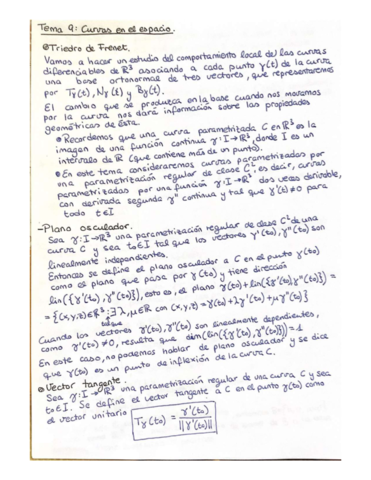 Tema 9: Curvas en el espacio.
Triedro de Frenet.
Vamos a hacer un estudio del comportamiento local de las curvas
diferenciables de ℝ³ asociando a cada punto γ(t) de la curva
una base ortonormal de tres vectores, que representaremos
por Tγ(t), Nγ(t) y Bγ(t).
El cambio que se produzca en la base cuando nos movamos
por la curva nos dará información sobre las propiedades
geométricas de ésta.
Recordemos que una curva parametrizada C en ℝ³ es la
imagen de una función continua γ: I→ℝ³, donde I es un
intervalo de ℝ (que contiene más de un punto).
En este tema consideraremos curvas parametrizadas por
una parametrización regular de clase C², es decir, curvas
parametrizadas por una función γ: I→ℝ³ dos veces derivable,
con derivada segunda γ'' continua y tal que γ'(t)≠0 para
todo t∈I
- Plano osculador.
Sea γ: I→ℝ³ una parametrización regular de clase C² de una
curva C y sea t₀∈I tal que los vectores γ'(t₀), γ''(t₀) son
linealmente independientes.
Entonces se define el plano osculador a C en el punto γ(t₀)
como el plano que pasa por γ(t₀) y tiene dirección
lin({γ'(t₀), γ''(t₀)}), esto es, el plano γ(t₀)+lin({γ'(t₀), γ''(t₀)}) =
= {(x,y,z)∈ℝ³: ∃ λ, μ∈ℝ con (x,y,z)=γ(t₀)+λγ'(t₀)+μγ''(t₀)}
Cuando los vectores γ'(t₀), γ''(t₀) son linealmente dependientes,
como γ'(t₀)≠0, resulta que dim(lin({γ'(t₀), γ''(t₀)}))=1
En este caso, no podemos hablar de plano osculador y se dice
que γ(t₀) es un punto de inflexión de la curva C.
Vector tangente.
Sea γ: I→ℝ³ una parametrización regular de una curva C y sea
t₀∈I. Se define el vector tangente a C en el punto γ(t₀) como
el vector unitario Tγ(t₀) = γ'(t₀) / ||γ'(t₀)||